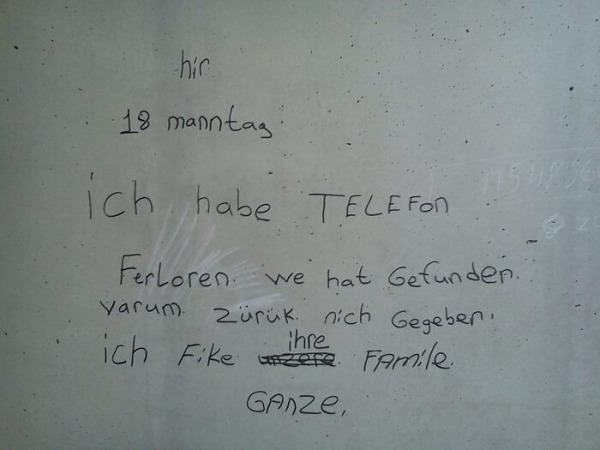 hir
18 manntag
ich habe TELEFon
FerLoren. we hat Gefunden.
varum. zürük. nich Gegeben.
ihre
ich Fike unzere FAmile.
GANZE.